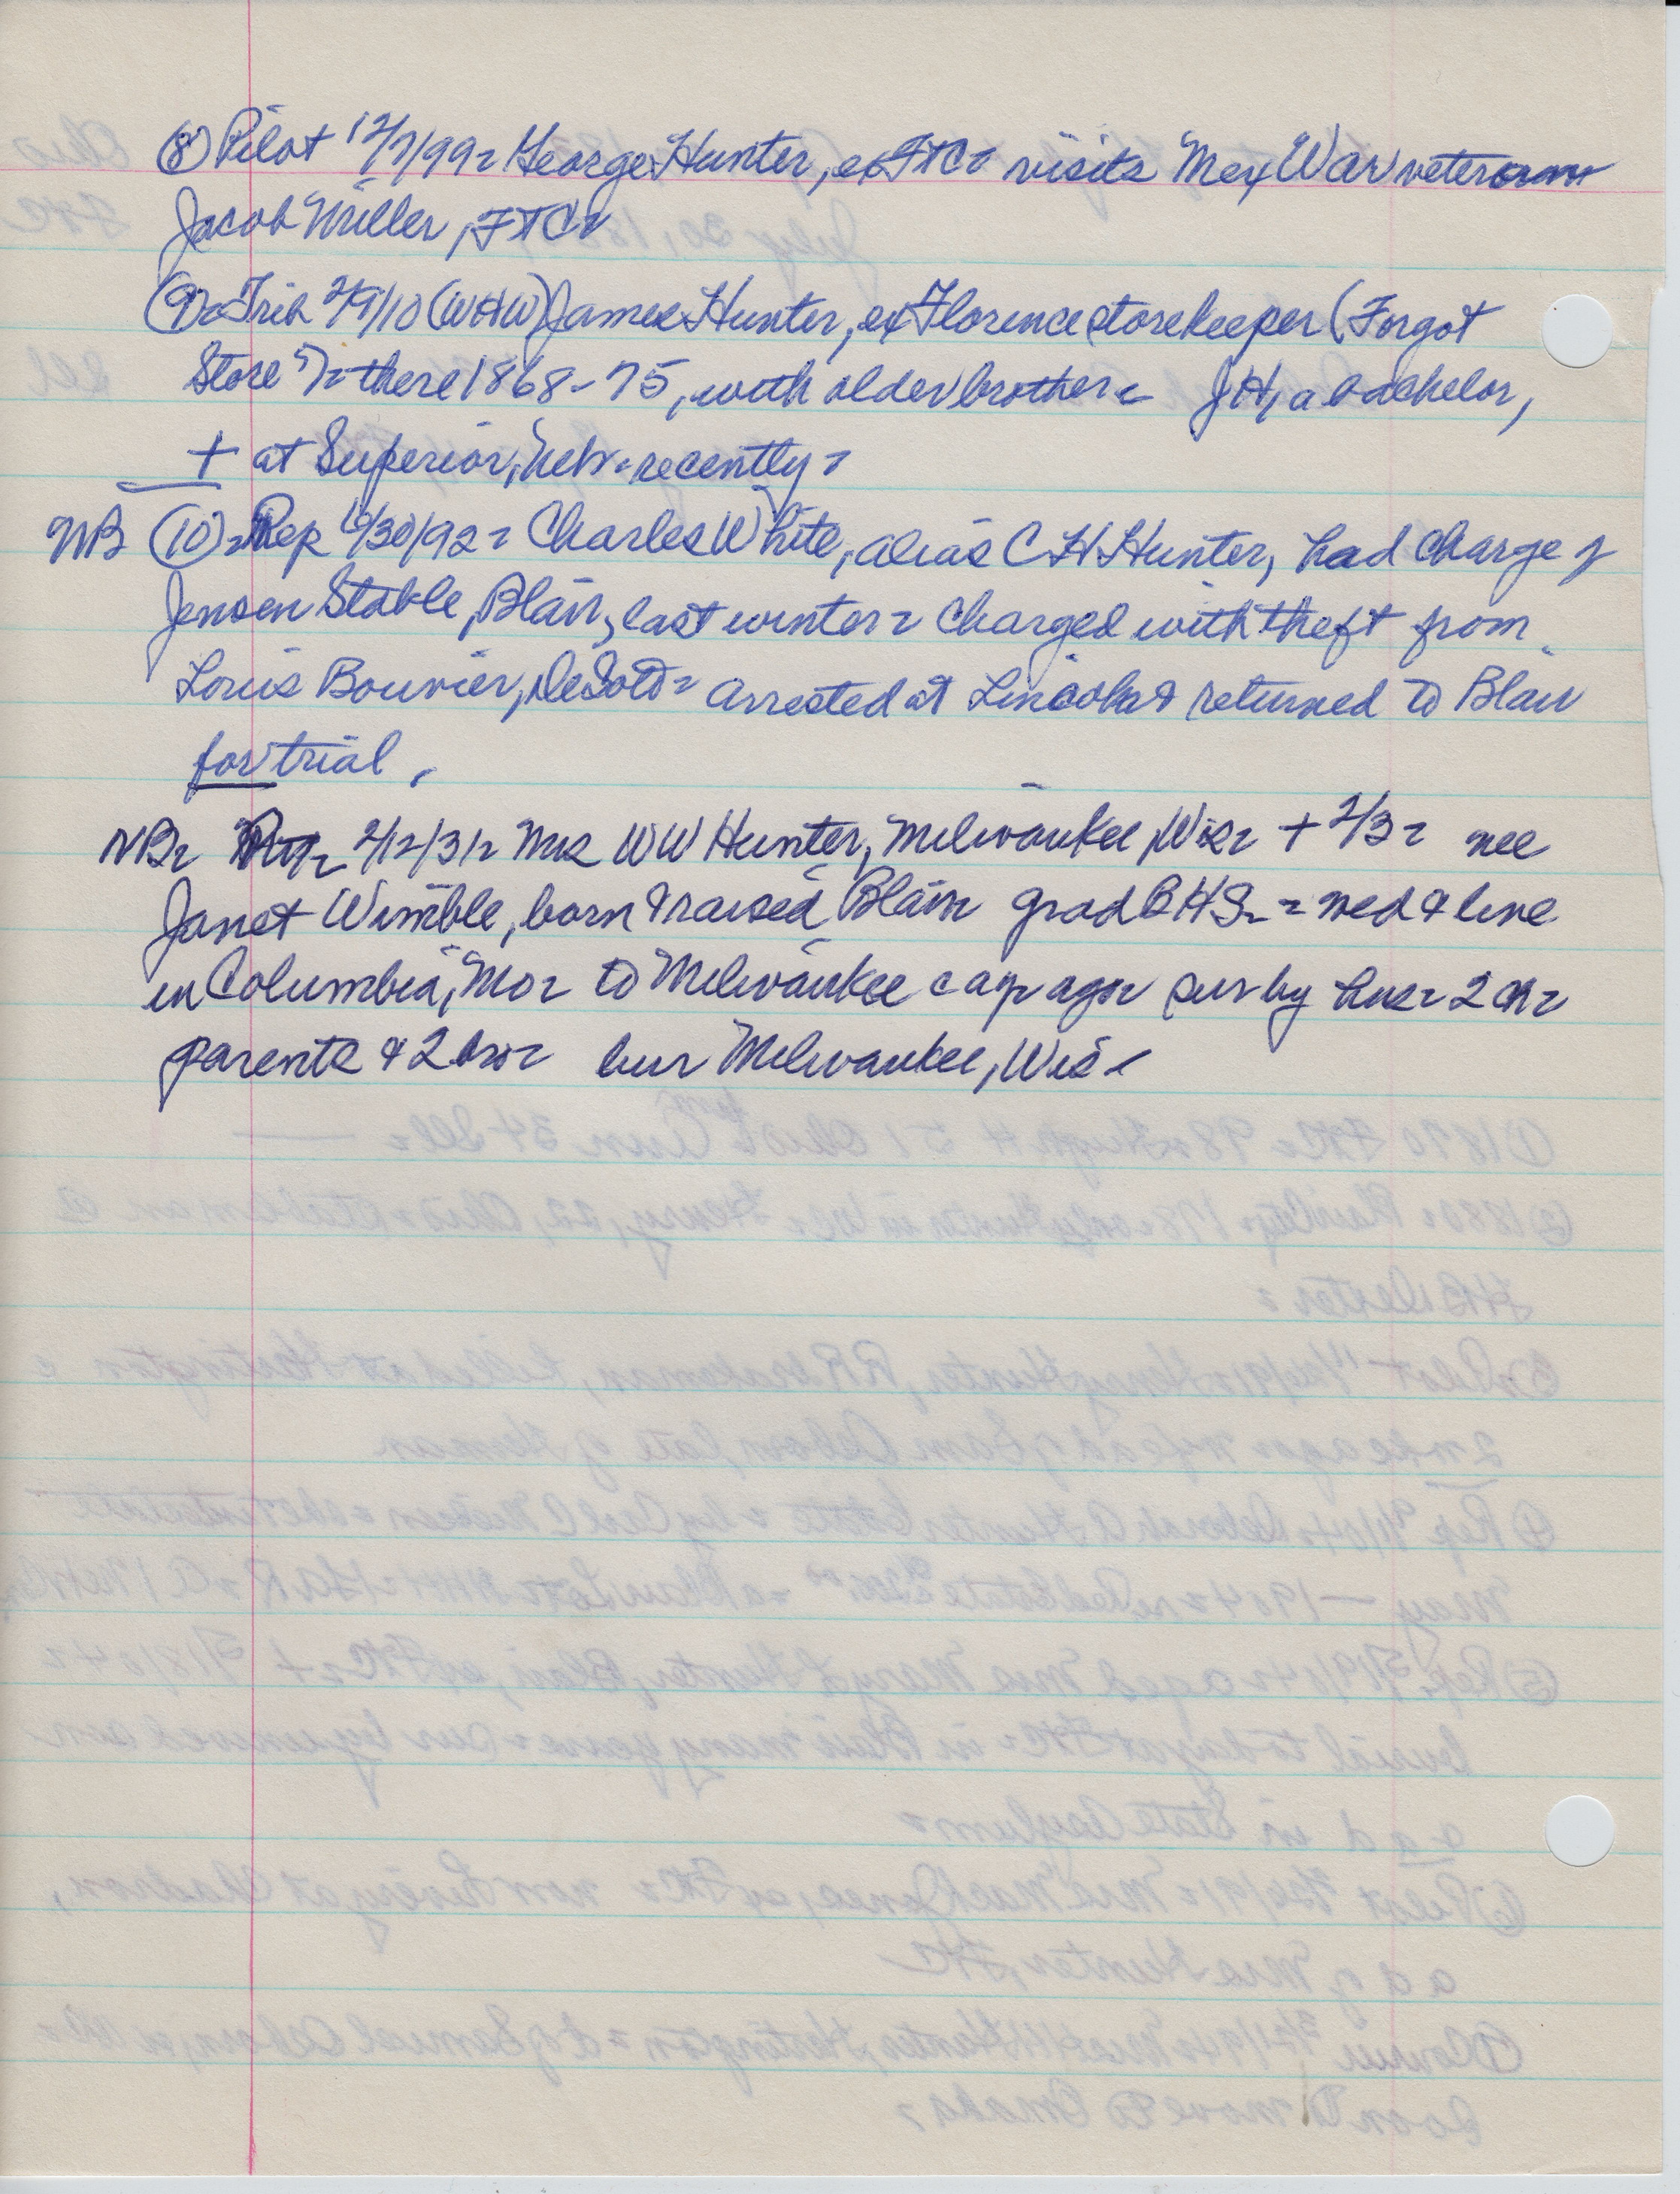 (8) Pilot 12/7/99= George Hunter, ex FTC= visits Mex War veteran
Jacob Miller, FTC=
(9)= Trib 2/9/10 (WHW) James Hunter, ex Florence storekeeper (Forgot
Store")= there 1868-75, with older brother= JH, a bachelor,
+ at Superior, Neb= recently=
NB (10)= Rep /30/92= Charles White, alias C H Hunter, had charge of
Jensen Stable, Blair, last winter= Charged with theft from
Louis Bouvier, DeSoto= arrested at Lincoln & returned to Blair
for trial.
NB= 2/12/31= Mrs WW Hunter, Milwaukee, Wis= + 2/3= nee
Janet Wimble, born & raised Blair grad BHS= = med & live
in Columbia, Mo= to Milwaukee c a yr ago= sur by hus= 2 ch=
parents & 2 bro= bur Milwaukee, Wis=